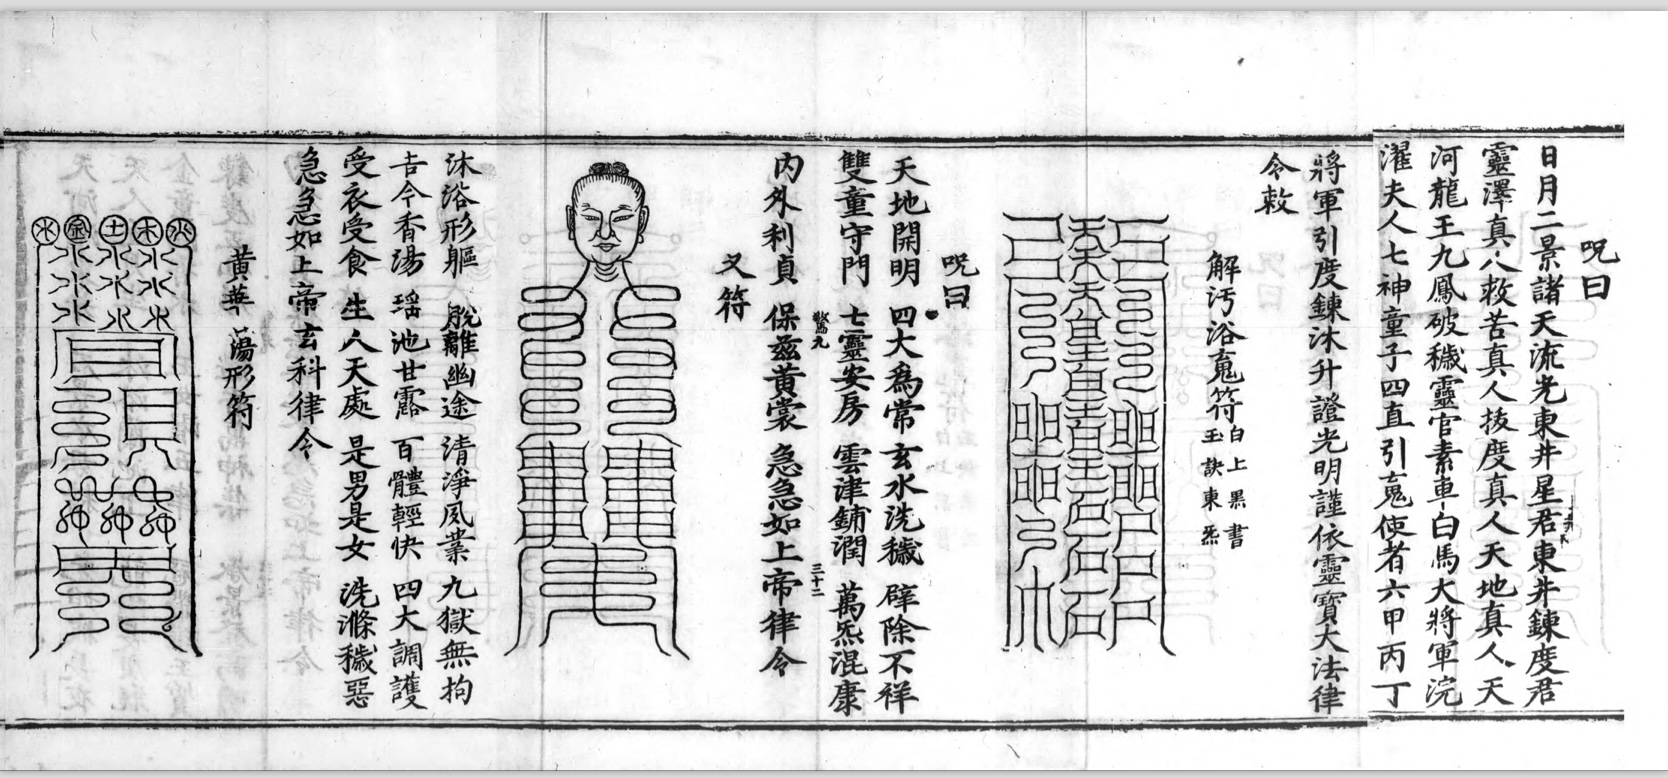 呪曰
日月二景諸天流光東井星君東井鍊度君
靈澤真人救苦真人拔度真人天地真人天
河龍王九鳳破穢靈官素車白馬大將軍浣
濯夫人七神童子四直引䰟使者六甲丙丁
將軍引度鍊沐升證光明謹依靈寳大法律
令敕
解汚浴䰟符
白上黑書
玉訣東炁
呪曰
天地開明 四大爲常 玄水洗穢 辟除不祥
雙童守門 七靈安房 雲津鋪潤 萬炁混康
内外利貞 保兹黄裳 急急如上帝律令
驚九
三十二
又符
沐浴形軀 脱離幽途 清淨夙業 九獄無拘
吉今香湯 瑶池甘露 百體輕快 四大調護
受衣受食 生人天處 是男是女 洗滌穢惡
急急如上帝玄科律令
黄華蕩形符
火木土金水